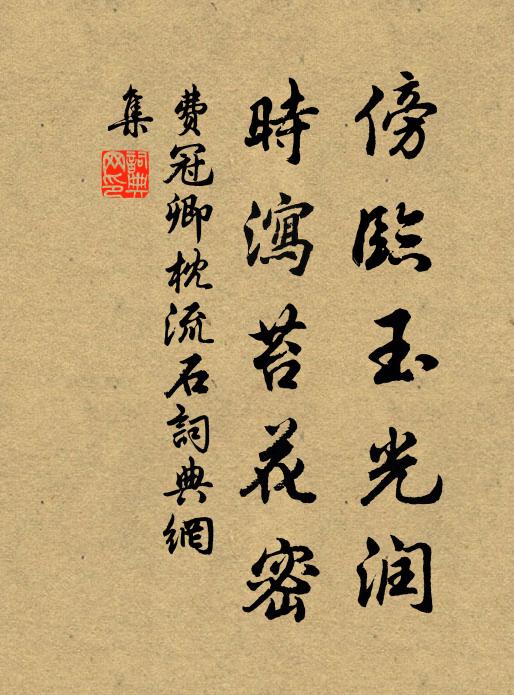 傍臨玉光润
時瀉苔花密
費冠卿枕流石詞典網
集
詞典
网印